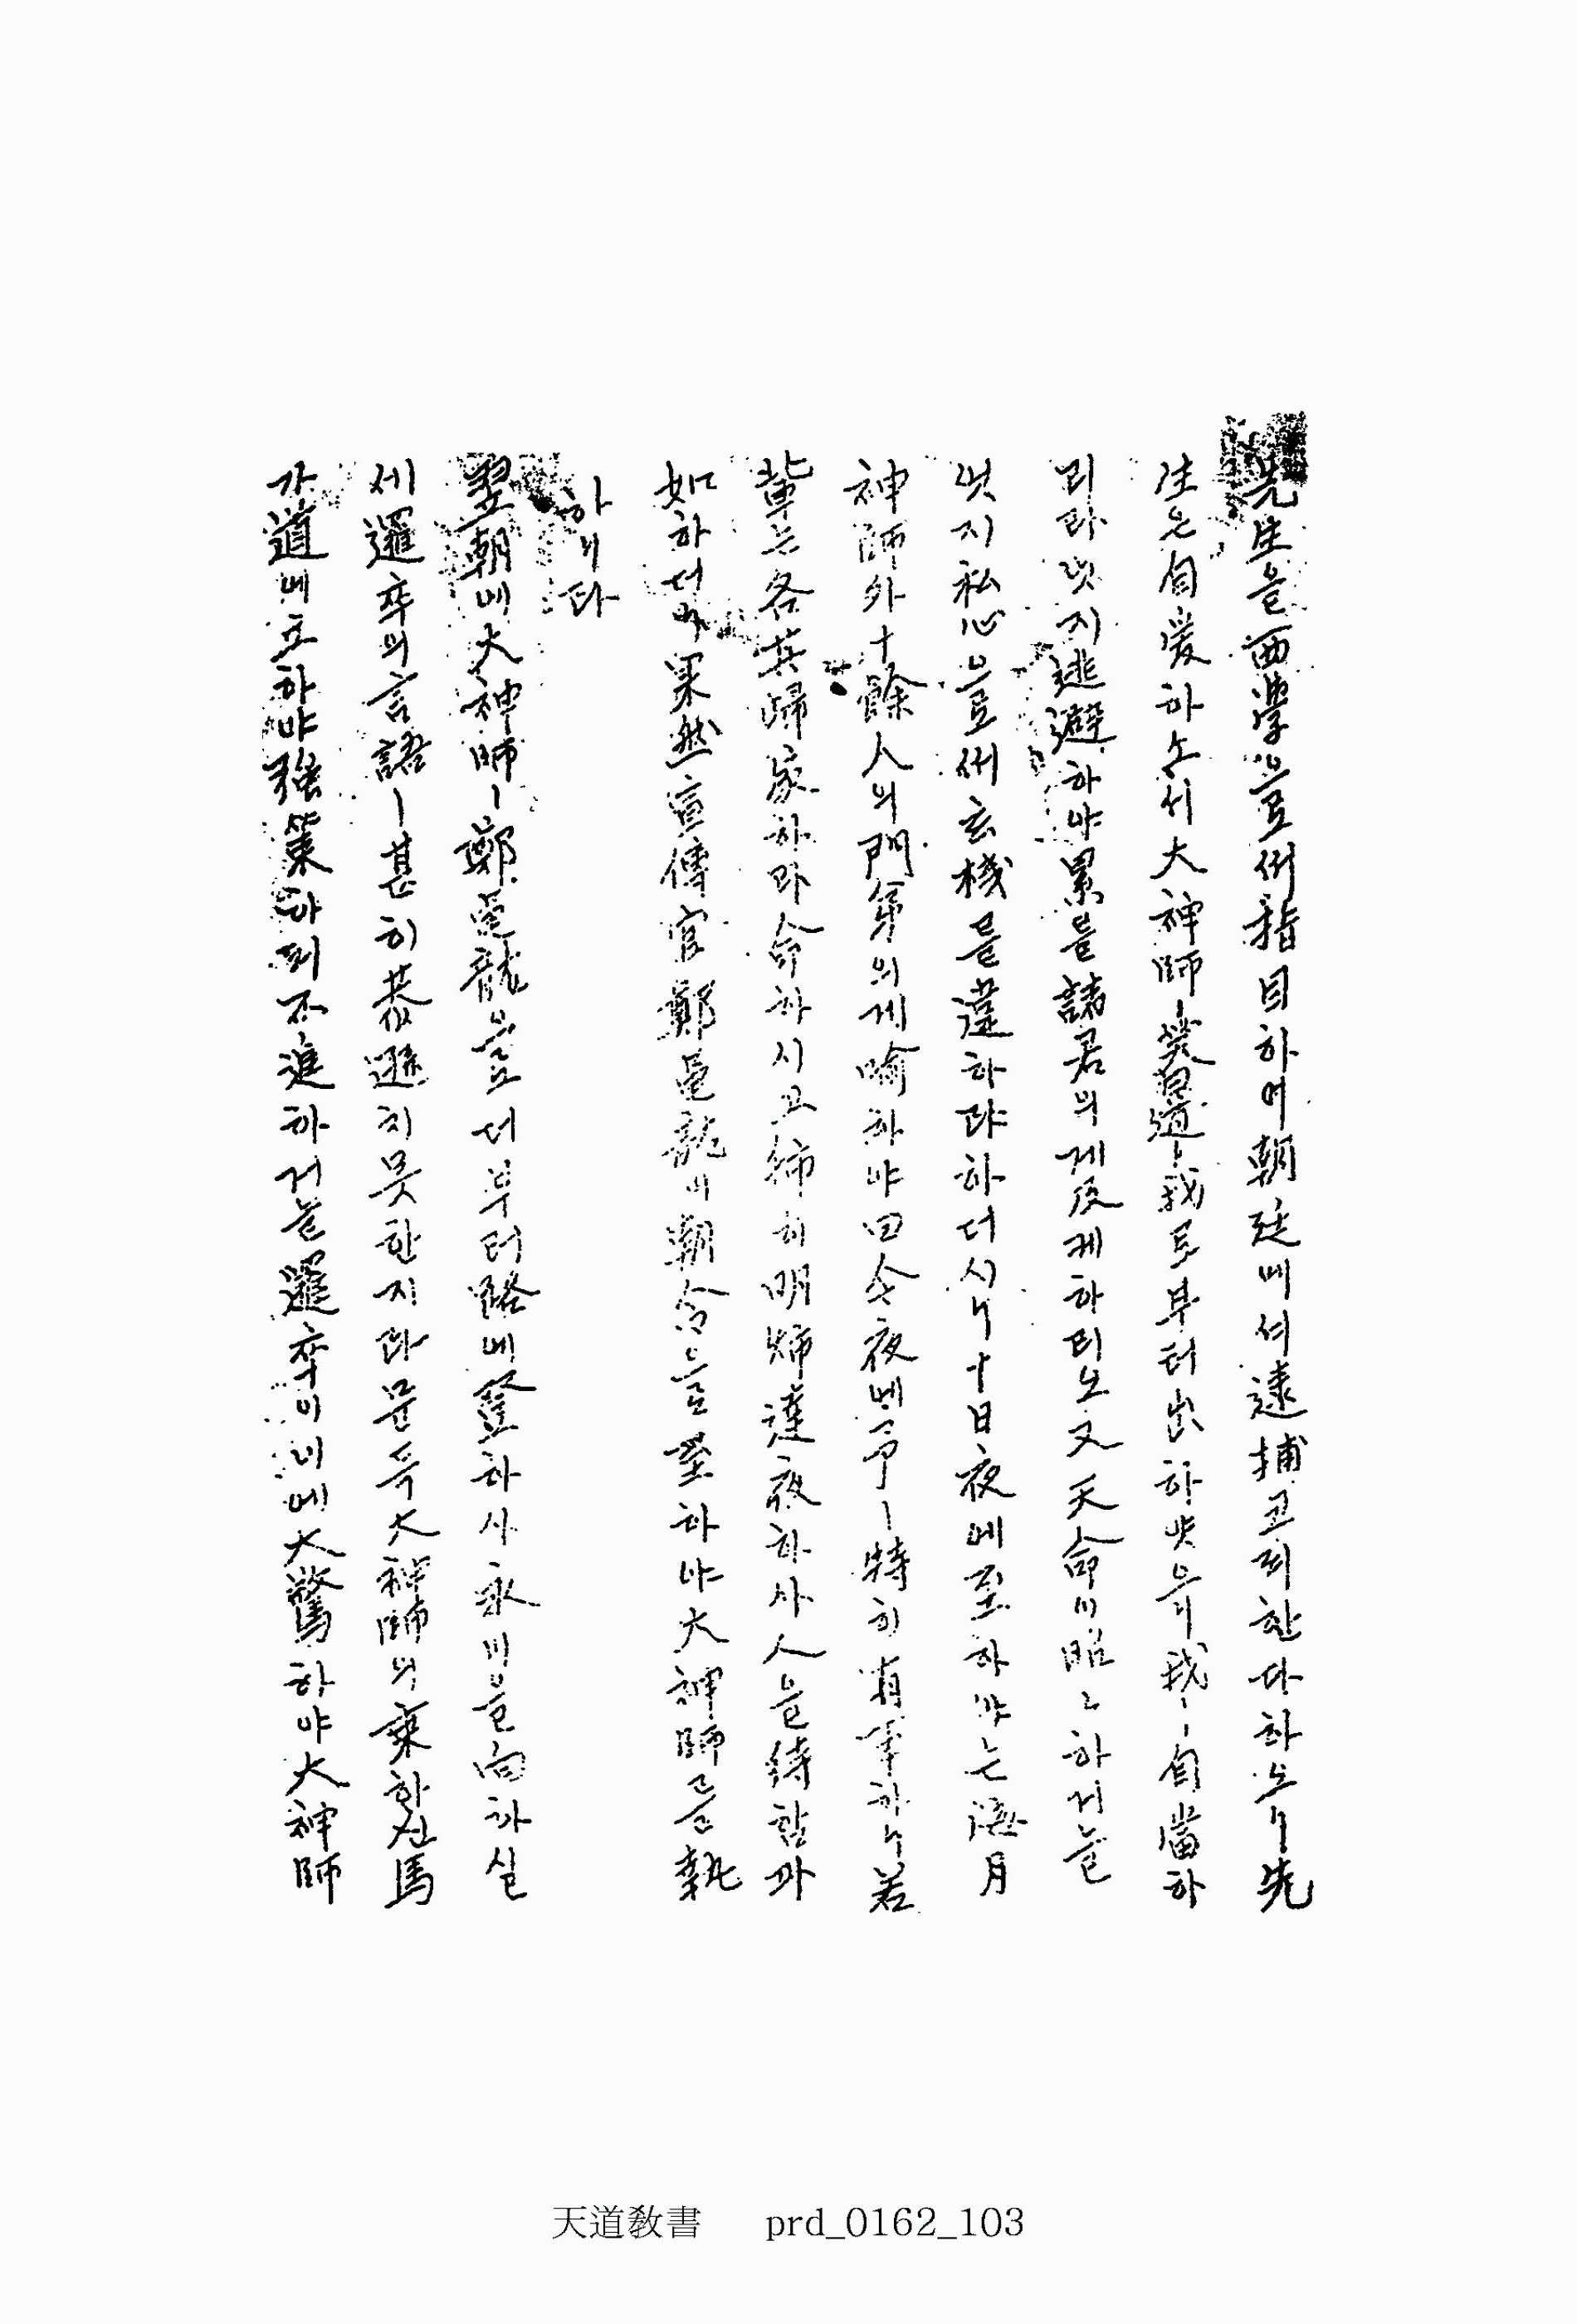 先生을西學으로써指目하며朝廷에셔逮捕코져한다하노니先
生은自愛하소셔大神師ㅣ笑曰道ㅣ我로부터出하얏은즉我ㅣ自當하
리라엇지逃避하야累를諸君의게及케하리오又天命이昭々하거늘
엇지私心으로써玄機를違하랴하더시니十日夜에至하야는海月
神師外十餘人의門弟의게喩하야曰今夜에予ㅣ特히有事하니若
輩는各其歸家하라命하시고特히明燭達夜하사人을待함과
如하더니果然宣傳官鄭龜龍이朝令을至하야大神師를執
하니다
翌朝에大神師ㅣ鄭龜龍으로더부러路에登하사永川을向하실
세邏卒의言語ㅣ甚히恭遜치못한지라문득大神師의乘하신馬
가道에立하야强策하되不進하거늘邏卒이이에大驚하야大神師
天道教書 prd_0162_103